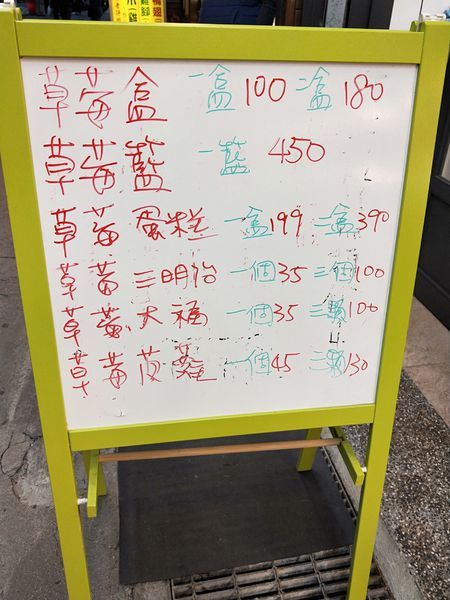 草莓盒 一盒100 二盒180
草莓藍 一藍 450
草莓蛋糕 一盒199 二盒390
草莓三明治 一個35 三個100
草莓大福 一個35 三顆100
草莓菠蘿 一個45 三顆130